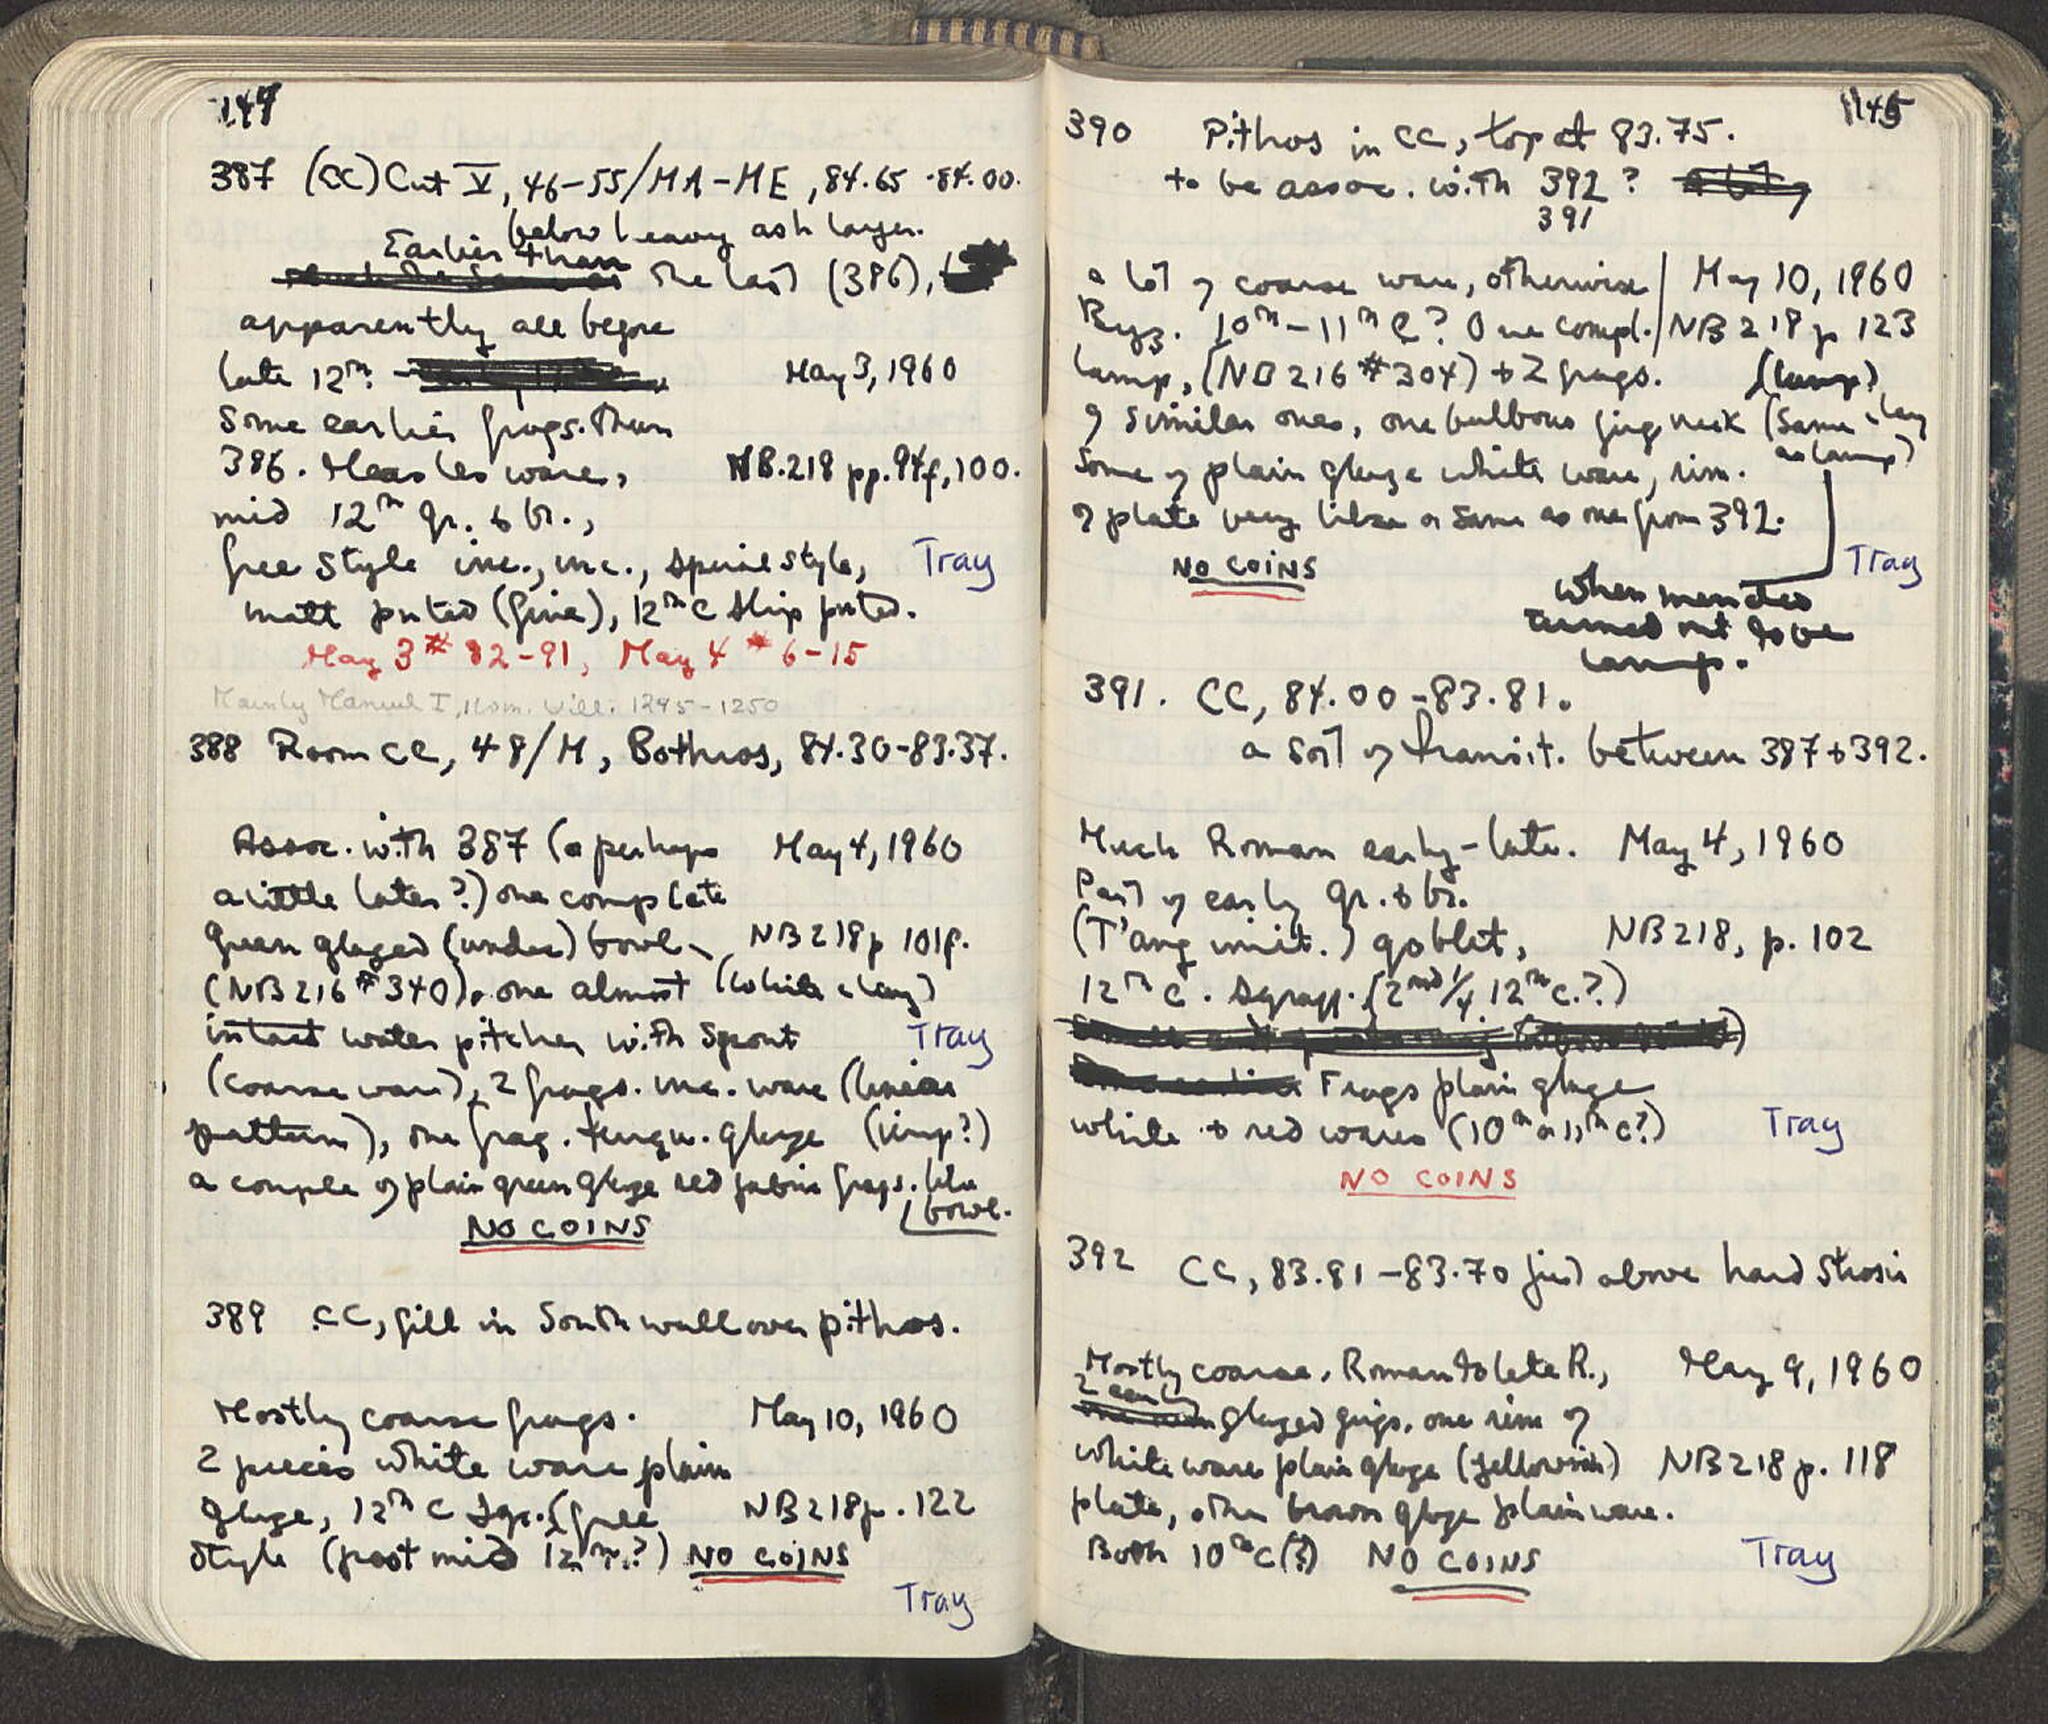 144
387 (CC) Cut V, 46-55/MA-ME, 84.65-84.00.
below heavy ash layer.
Earlier than
the last (386),
apparently all before
late 12th. May 3, 1960
Some earlier frags. than
386. Measles ware, NB.218 pp. 94f, 100.
mid 12th gr. & br.,
free style inc., inc., spiral style, Tray
matt pnted (fine), 12th C slip pnted.
May 3 # 82-91, May 4 # 6-15
Mainly Manuel I, Nom. Vill. 1245-1250
388 Room CC, 48/M, Bothros, 84.30-83.37.
Assoc. with 387 (or perhaps May 4, 1960
a little later?) one complete
green glazed (under) bowl NB218p 101f.
(NB216 #340), one almost (white clay)
intact water pitcher with spout Tray
(coarse ware), 2 frags. inc. ware (linear
pattern), one frag. turqu. glaze (imp?)
a couple of plain green glaze red fabric frags. like
bowl.
NO COINS
389 CC, fill in South wall over pithos.
Mostly coarse frags. May 10, 1960
2 pieces white ware plain
glaze, 12th C sgr. (free NB218p. 122
style (post mid 12th?) NO COINS
Tray
145
390 Pithos in CC, top at 83.75.
to be assoc. with 392?
391
a lot of coarse ware, otherwise May 10, 1960
Byz. 10th-11th C? One compl. NB218p 123
lamp, (NB216 #304) + 2 frags. (lamp?)
of similar ones, one bulbous jug neck (same clay
as lamp)
Some of plain glaze white ware, rim.
of plate very like or same as one from 392.
NO COINS Tray
When mended
turned out to be
lamp.
391. CC, 84.00-83.81.
a sort of transit. between 387 + 392.
Much Roman early-late. May 4, 1960
Part of early gr. & br.
(T'ang imit.) goblet, NB218, p. 102
12th C. sgraff. (2nd 1/4 12th c.?)
Frags plain glaze
white + red wares (10th or 11th c?) Tray
NO COINS
392 CC, 83.81-83.70 just above hard Strosis
Mostly coarse, Roman to late R., May 9, 1960
2 early
glazed frgs. one rim of
white ware plain glaze (yellowish) NB218p. 118
plate, other brown glaze plain ware.
Both 10th C(?) NO COINS Tray